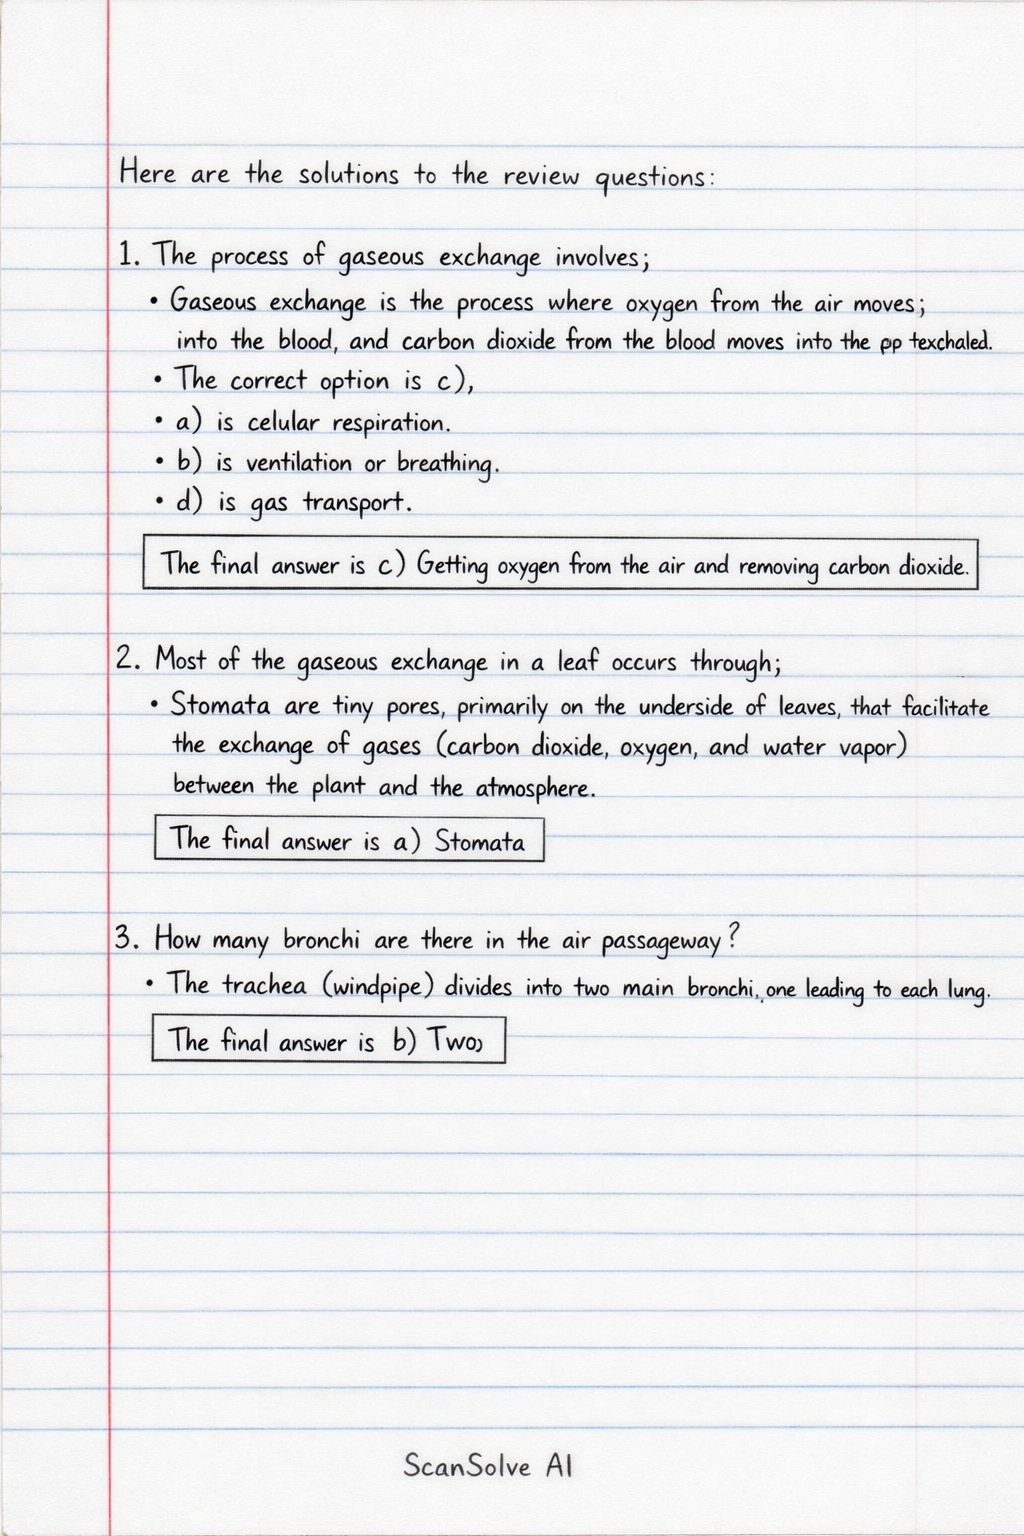 Here are the solutions to the review questions:
1. The process of gaseous exchange involves;
• Gaseous exchange is the process where oxygen from the air moves;
into the blood, and carbon dioxide from the blood moves into the pp texchaled.
• The correct option is c),
• a) is celular respiration.
• b) is ventilation or breathing.
• d) is gas transport.
The final answer is c) Getting oxygen from the air and removing carbon dioxide.
2. Most of the gaseous exchange in a leaf occurs through;
• Stomata are tiny pores, primarily on the underside of leaves, that facilitate
the exchange of gases (carbon dioxide, oxygen, and water vapor)
between the plant and the atmosphere.
The final answer is a) Stomata
3. How many bronchi are there in the air passageway?
• The trachea (windpipe) divides into two main bronchi, one leading to each lung.
The final answer is b) Two,
ScanSolve AI